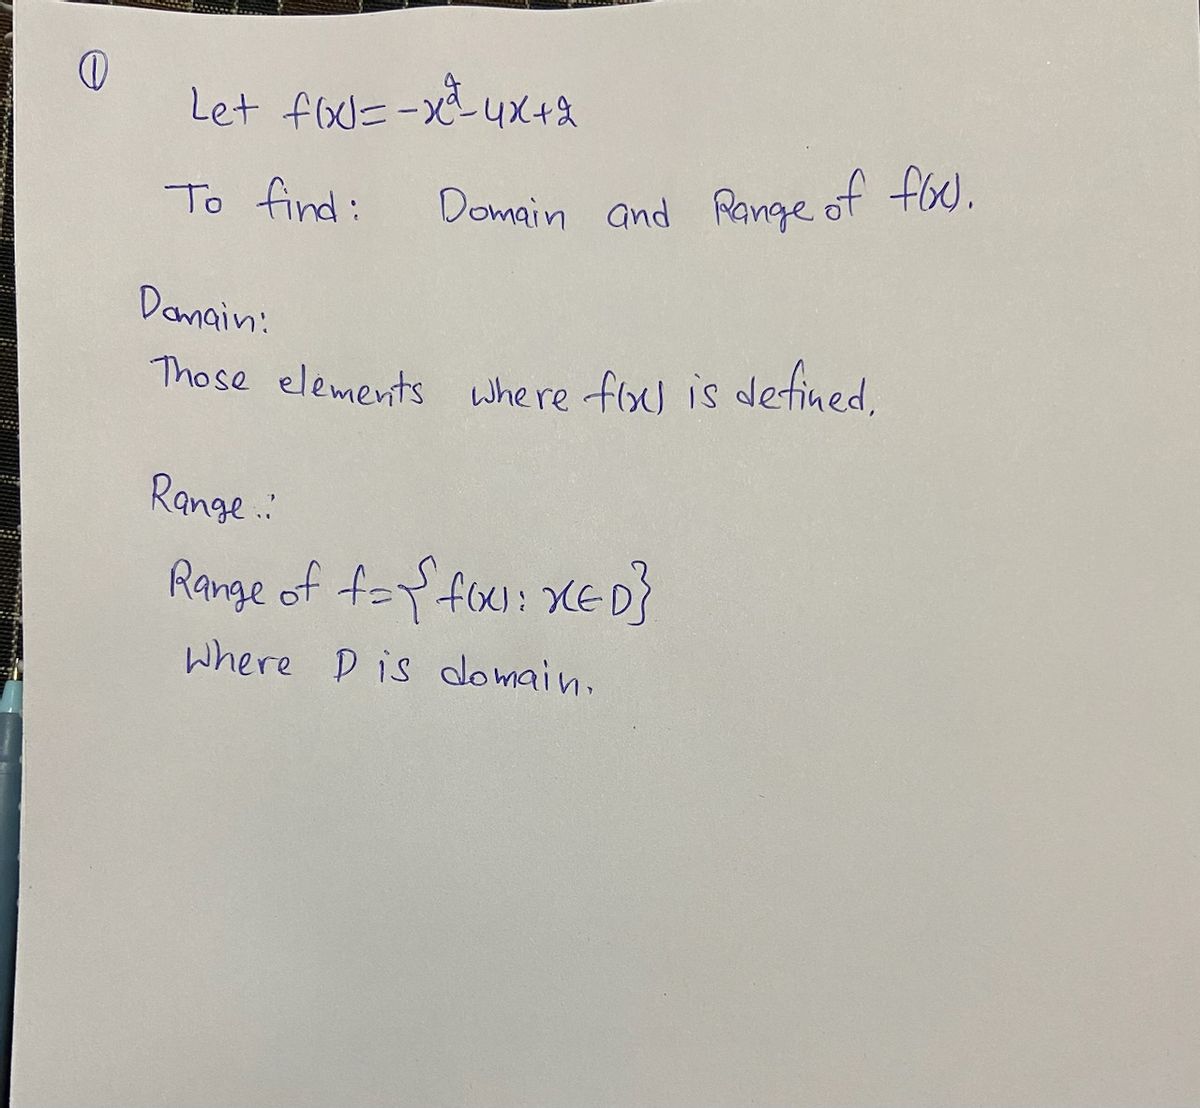 ①
Let f(x)=-x²-4x+2
To find: Domain and Range of f(x).
Domain:
Those elements where f(x) is defined.
Range:
Range of f={f(x): x∈D}
Where D is domain.